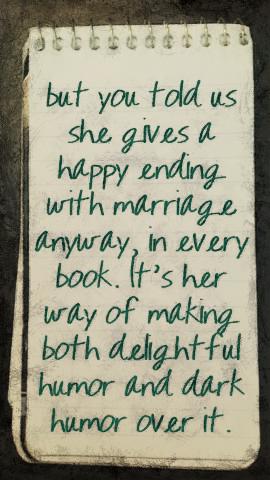 but you told us
she gives a
happy ending
with marriage
anyway, in every
book. It's her
way of making
both delightful
humor and dark
humor over it.